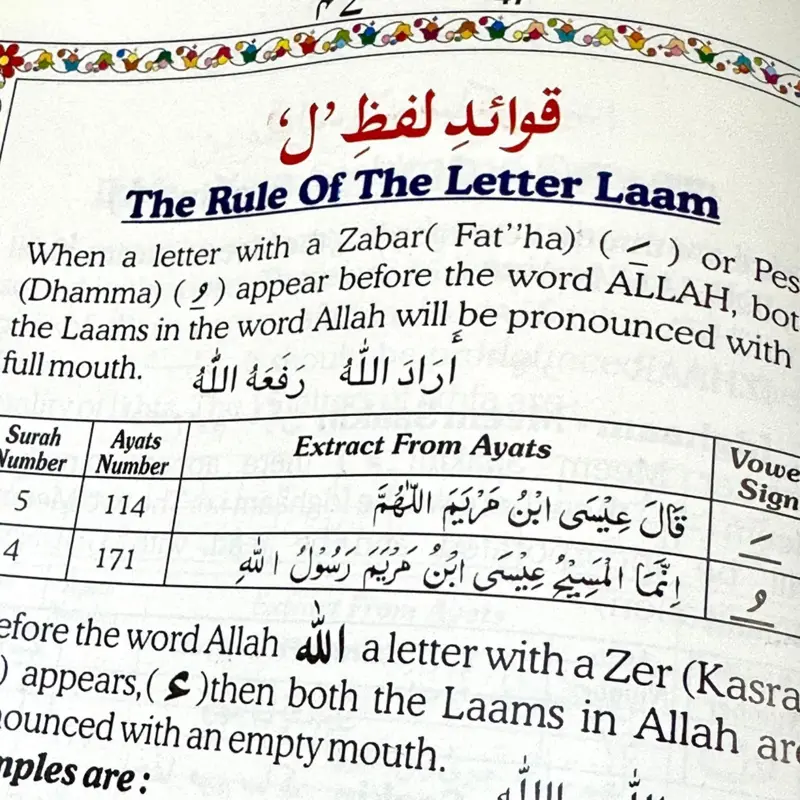 قوائدِ لفظِ ’ل‘
The Rule Of The Letter Laam
When a letter with a Zabar( Fat”ha) ( َ ) or Pes
(Dhamma) ( ُ ) appear before the word ALLAH, bot
the Laams in the word Allah will be pronounced with
full mouth. اَرَادَ اللّٰهُ رَفَعَهُ اللّٰهُ
Surah Number Ayats Number Extract From Ayats Vowe Sign
5 114 قَالَ عِيْسَى ابْنُ مَرْيَمَ اللّٰهُمَّ َ
4 171 اِنَّمَا الْمَسِيْحُ عِيْسَى ابْنُ مَرْيَمَ رَسُوْلُ اللّٰهِ ُ
efore the word Allah اللّٰه a letter with a Zer (Kasra
) appears,( ِ )then both the Laams in Allah are
nounced with an empty mouth.
mples are: